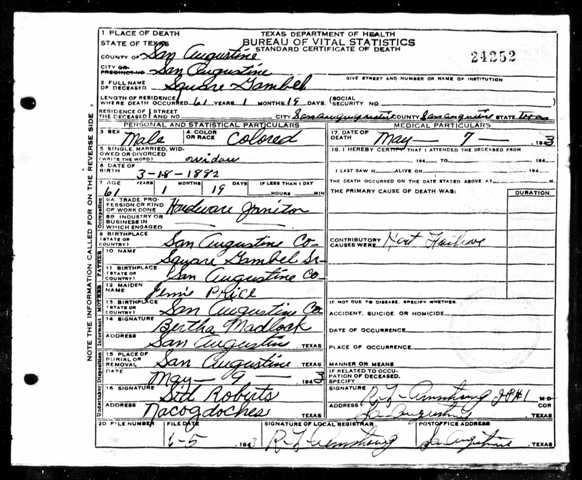 TEXAS DEPARTMENT OF HEALTH
BUREAU OF VITAL STATISTICS
STANDARD CERTIFICATE OF DEATH
24252
1 PLACE OF DEATH
STATE OF TEXAS
COUNTY OF San Augustine
CITY OR PRECINCT NO. San Augustine
GIVE STREET AND NUMBER OR NAME OF INSTITUTION
2 FULL NAME OF DECEASED Square Gambel
LENGTH OF RESIDENCE WHERE DEATH OCCURRED 61 YEARS 1 MONTHS 19 DAYS (SOCIAL SECURITY NO.
RESIDENCE OF THE DECEASED (STREET AND NO. CITY San Augustine COUNTY San Augustine STATE texas
PERSONAL AND STATISTICAL PARTICULARS
3 SEX Male 4 COLOR OR RACE Colored
5 SINGLE, MARRIED, WIDOWED OR DIVORCED (WRITE THE WORD) widow
6 DATE OF BIRTH 3-18-1882
7 AGE 61 YEARS 1 MONTHS 19 DAYS IF LESS THAN 1 DAY HOURS MIN
8A TRADE, PROFESSION OR KIND OF WORK DONE Hardware Janitor
8B INDUSTRY OR BUSINESS IN WHICH ENGAGED
9 BIRTHPLACE (STATE OR COUNTRY) San Augustine Co
10 NAME Square Gambel Sr
11 BIRTHPLACE (STATE OR COUNTRY) San Augustine Co
12 MAIDEN NAME Jennie Price
13 BIRTHPLACE (STATE OR COUNTRY) San Augustine Co
14 SIGNATURE Bertha Madlock
ADDRESS San Augustine TEXAS
15 PLACE OF BURIAL OR REMOVAL San Augustine TEXAS
May - 9 1943
16 SIGNATURE Sid Roberts
ADDRESS Nacogdoches TEXAS
MEDICAL PARTICULARS
17. DATE OF DEATH May 7 1943
18. I HEREBY CERTIFY THAT I ATTENDED THE DECEASED FROM
194 TO 194
I LAST SAW H ALIVE ON 194
THE DEATH OCCURRED ON THE DATE STATED ABOVE AT M.
THE PRIMARY CAUSE OF DEATH WAS: DURATION
CONTRIBUTORY CAUSES WERE Hart Failure
IF NOT DUE TO DISEASE, SPECIFY WHETHER:
ACCIDENT, SUICIDE, OR HOMICIDE
DATE OF OCCURRENCE
PLACE OF OCCURRENCE
MANNER OR MEANS
IF RELATED TO OCCUPATION OF DECEASED, SPECIFY
SIGNATURE R. L. Armstrong M.D. COR
ADDRESS San Augustine TEXAS
20 FILE NUMBER FILE DATE 6-5 1943 SIGNATURE OF LOCAL REGISTRAR R. L. Armstrong POSTOFFICE ADDRESS San Augustine TEXAS
NOTE THE INFORMATION CALLED FOR ON THE REVERSE SIDE.
Occupation
FATHER
MOTHER
Informant
Undertaker